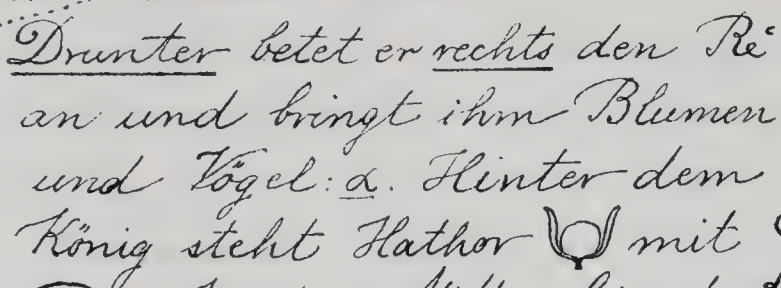 Drunter betet er rechts den Rēʿ
an und bringt ihm Blumen
und Vögel: α. Hinter dem
König steht Hathor mit